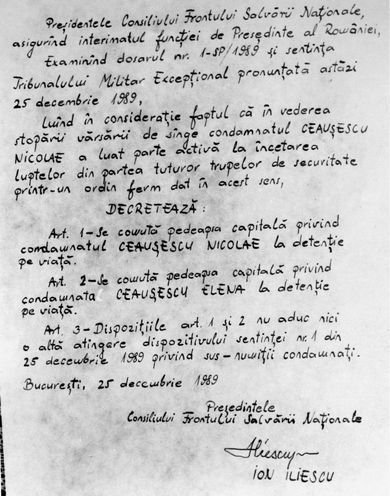 Președintele Consiliului Frontului Salvării Naționale,
asigurînd interimatul funcției de Președinte al României,
Examinînd dosarul nr. 1-SP/1989 și sentința
Tribunalului Militar Excepțional pronunțată astăzi
25 decembrie 1989,
Luînd în considerație faptul că în vederea
stopării vărsării de sînge condamnatul CEAUȘESCU
NICOLAE a luat parte activă la încetarea
luptelor din partea tuturor trupelor de securitate
printr-un ordin ferm dat în acest sens,
DECRETEAZĂ:
Art. 1-Se comută pedeapsa capitală privind
condamnatul CEAUȘESCU NICOLAE la detenție
pe viață.
Art. 2-Se comută pedeapsa capitală privind
condamnata CEAUȘESCU ELENA la detenție
pe viață.
Art. 3-Dispozițiile art. 1 și 2 nu aduc nici
o altă atingere dispozitivului sentinței nr. 1 din
25 decembrie 1989 privind sus-numiții condamnați.
București, 25 decembrie 1989
Președintele
Consiliului Frontului Salvării Naționale
Iliescu
ION ILIESCU